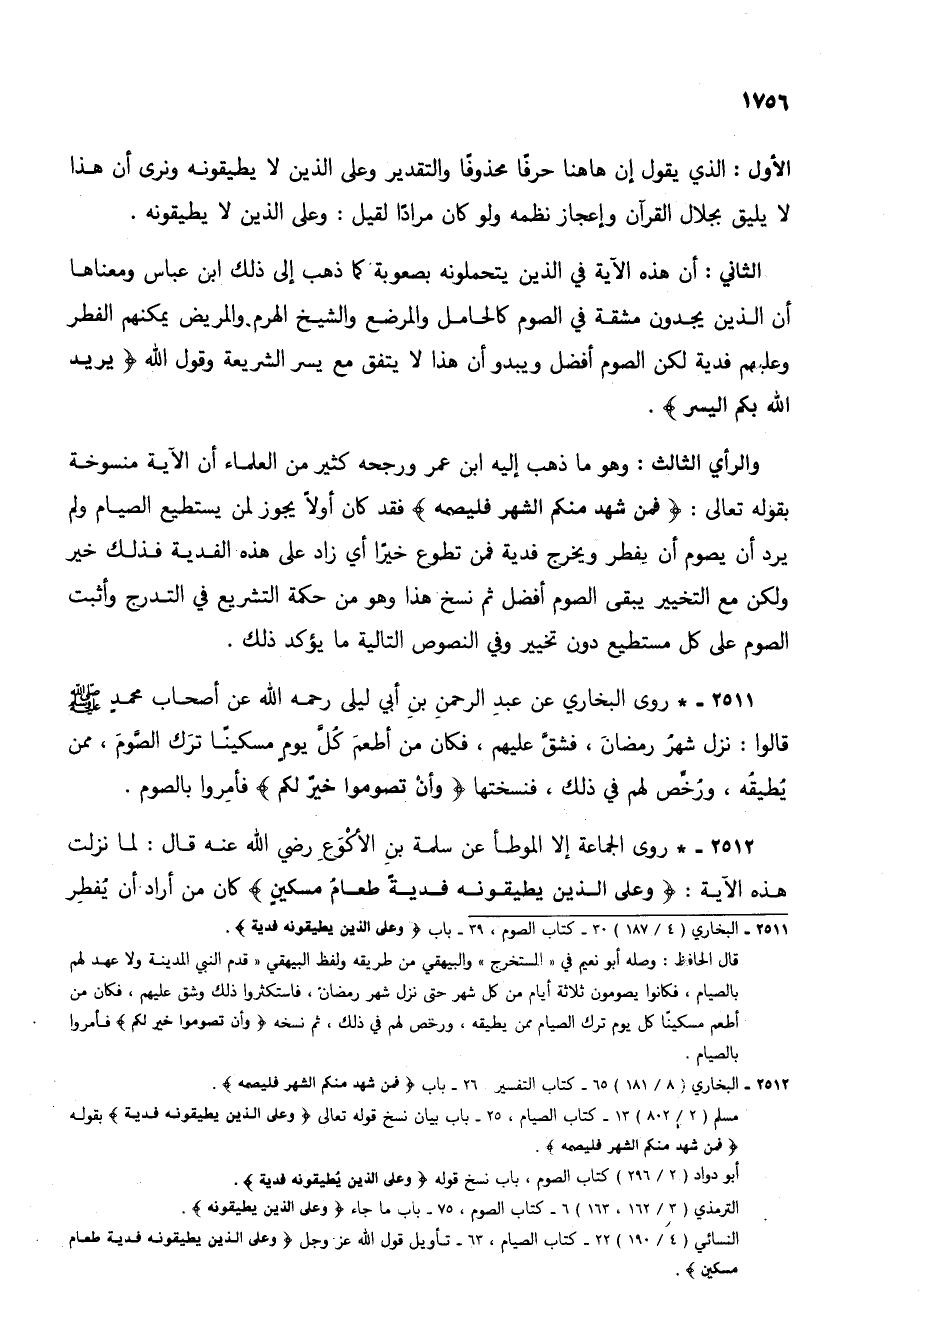 ١٧٥٦
الأول : الذي يقول إن هاهنا حرفًا محذوفًا والتقدير وعلى الذين لا يطيقونه ونرى أن هذا
لا يليق بجلال القرآن وإعجاز نظمه ولو كان مرادًا لقيل : وعلى الذين لا يطيقونه .
الثاني : أن هذه الآية في الذين يتحملونه بصعوبة كما ذهب إلى ذلك ابن عباس ومعناها
أن الذين يجدون مشقة في الصوم كالحامل والمرضع والشيخ الهرم والمريض يمكنهم الفطر
وعليهم فدية لكن الصوم أفضل ويبدو أن هذا لا يتفق مع يسر الشريعة وقول الله ﴿ يريد
الله بكم اليسر ﴾ .
والرأي الثالث : وهو ما ذهب إليه ابن عمر ورجحه كثير من العلماء أن الآية منسوخة
بقوله تعالى : ﴿ فمن شهد منكم الشهر فليصمه ﴾ فقد كان أولاً يجوز لمن يستطيع الصيام ولم
يرد أن يصوم أن يفطر ويخرج فدية فمن تطوع خيرًا أي زاد على هذه الفدية فذلك خير
ولكن مع التخيير يبقى الصوم أفضل ثم نسخ هذا وهو من حكمة التشريع في التدرج وأثبت
الصوم على كل مستطيع دون تخيير وفي النصوص التالية ما يؤكد ذلك .
٢٥١١ - * روى البخاري عن عبدِ الرحمنِ بنِ أبي ليلى رحمه الله عن أصحاب محمدٍ ﷺ
قالوا : نزل شهرُ رمضانَ ، فشقَّ عليهم ، فكان من أطعمَ كُلَّ يومٍ مسكينًا ترَك الصَّومَ ، ممن
يُطيقُه ، ورُخِّص لهم في ذلك ، فنسختها ﴿ وأنْ تصوموا خيرٌ لكم ﴾ فأمِروا بالصوم .
٢٥١٢ - * روى الجماعة إلا الموطأ عن سلمة بنِ الأكْوَعِ رضي الله عنه قال : لما نزلت
هذه الآية : ﴿ وعلى الذين يطيقونه فديةٌ طعامُ مسكينٍ ﴾ كان من أراد أن يُفطِر
٢٥١١ - البخاري ( ٤ / ١٨٧ ) ٣٠ - كتاب الصوم ، ٣٩ - باب ﴿ وعلى الذين يطيقونه فدية ﴾ .
قال الحافظ : وصله أبو نعيم في « المستخرج » والبيهقي من طريقه ولفظ البيهقي « قدم النبي المدينة ولا عهد لهم
بالصيام ، فكانوا يصومون ثلاثة أيام من كل شهر حتى نزل شهر رمضان ، فاستكثروا ذلك وشق عليهم ، فكان من
أطعم مسكينًا كل يوم ترك الصيام ممن يطيقه ، ورخص لهم في ذلك ، ثم نسخه ﴿ وأن تصوموا خير لكم ﴾ فأمروا
بالصيام .
٢٥١٢ - البخاري ( ٨ / ١٨١ ) ٦٥ - كتاب التفسير ٢٦ - باب ﴿ فمن شهد منكم الشهر فليصمه ﴾ .
مسلم ( ٢ / ٨٠٢ ) ١٣ - كتاب الصيام ، ٢٥ - باب بيان نسخ قوله تعالى ﴿ وعلى الذين يطيقونه فدية ﴾ بقوله
﴿ فمن شهد منكم الشهر فليصمه ﴾ .
أبو دواد ( ٢ / ٢٩٦ ) كتاب الصوم ، باب نسخ قوله ﴿ وعلى الذين يُطيقونه فدية ﴾ .
الترمذي ( ٣ / ١٦٢ ، ١٦٣ ) ٦ - كتاب الصوم ، ٧٥ - باب ما جاء ﴿ وعلى الذين يطيقونه ﴾ .
النسائي ( ٤ / ١٩٠ ) ٢٢ - كتاب الصيام ، ٦٣ - تأويل قول الله عز وجل ﴿ وعلى الذين يطيقونه فدية طعام
مسكين ﴾ .